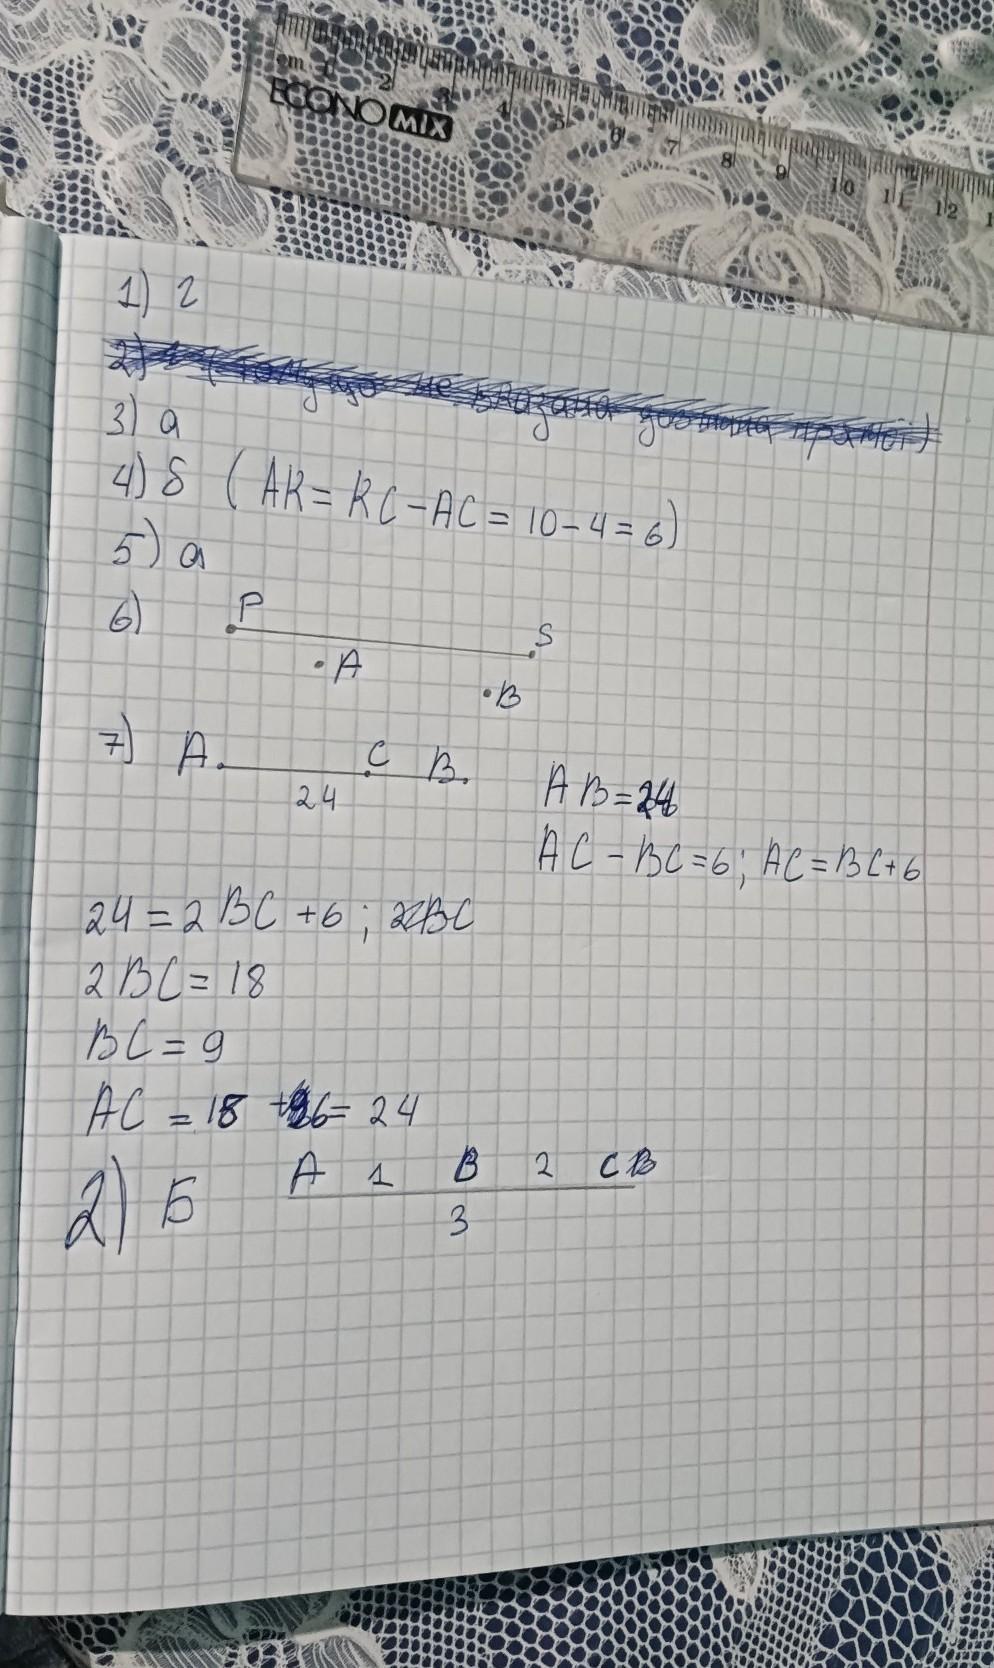 cm 1 2 3 4 5 6 7 8 9 10 11 12 1
ECONOMIX
1) г
2) (тому що не вказана довжина прямої)
3) а
4) б (AK = KC - AC = 10 - 4 = 6)
5) а
6) P S
A
B
7) A C B
24
AB = 24
AC - BC = 6; AC = BC + 6
24 = 2BC + 6; 2BC
2BC = 18
BC = 9
AC = 18 + 6 = 24
2) Б A 1 B 2 C B
3